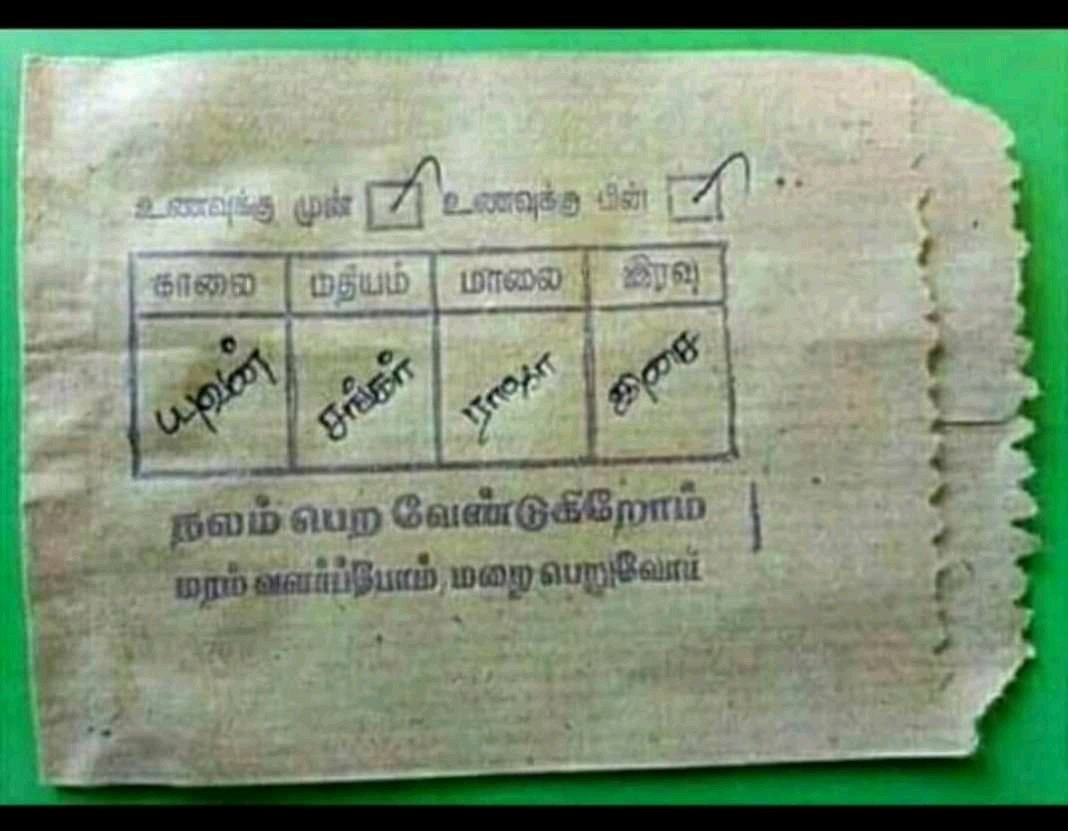 உணவுக்கு முன் உணவுக்கு பின்
காலை மதியம் மாலை இரவு
யுவன் சங்கர் ராஜா இசை
நலம் பெற வேண்டுகிறோம்
மரம் வளர்ப்போம் மழை பெறுவோம்